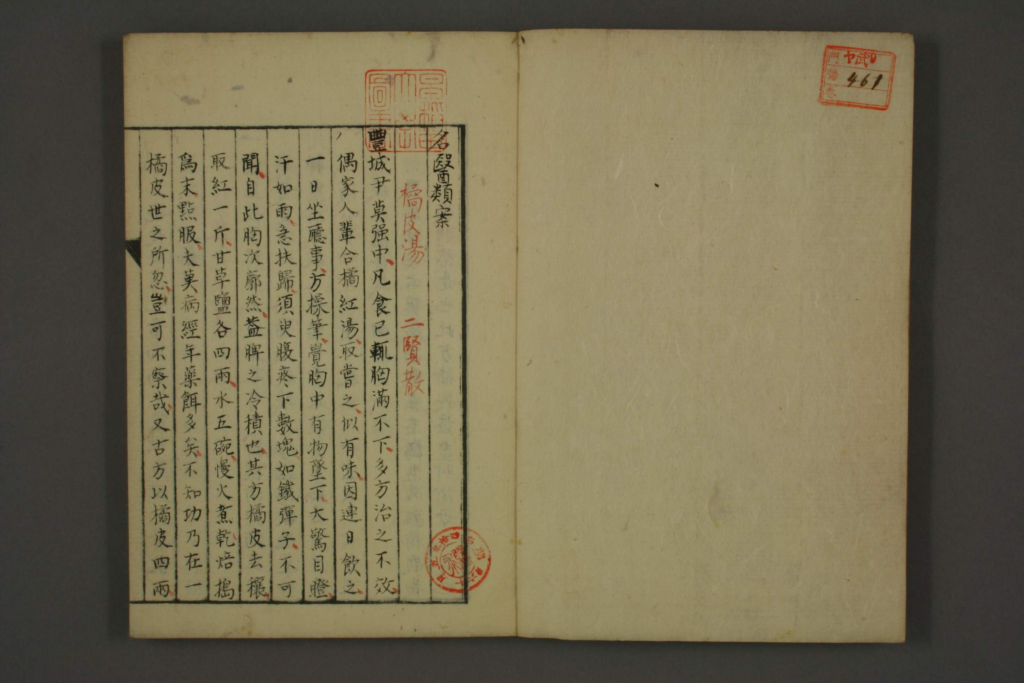 名醫類案
橘皮湯 二賢散
豐城尹莫强中、凡食已輒胸滿不下、多方治之不效、
偶家人輩合橘紅湯、取嘗之、似有味、因連日飲之、
一日坐廳事、方操筆、覺胸中有物墜下、大驚目瞪、
汗如雨、急扶歸、須臾腹疼下數塊如鐵彈子、不可
聞、自此胸次廓然、蓋脾之冷積也、其方橘皮去穰、
取紅一斤、甘草鹽各四兩、水五碗、慢火煮乾、焙搗
爲末、點服、夫莫病經年藥餌多矣、不知功乃在一
橘皮世之所忽、豈可不察哉、又古方以橘皮四兩、
461